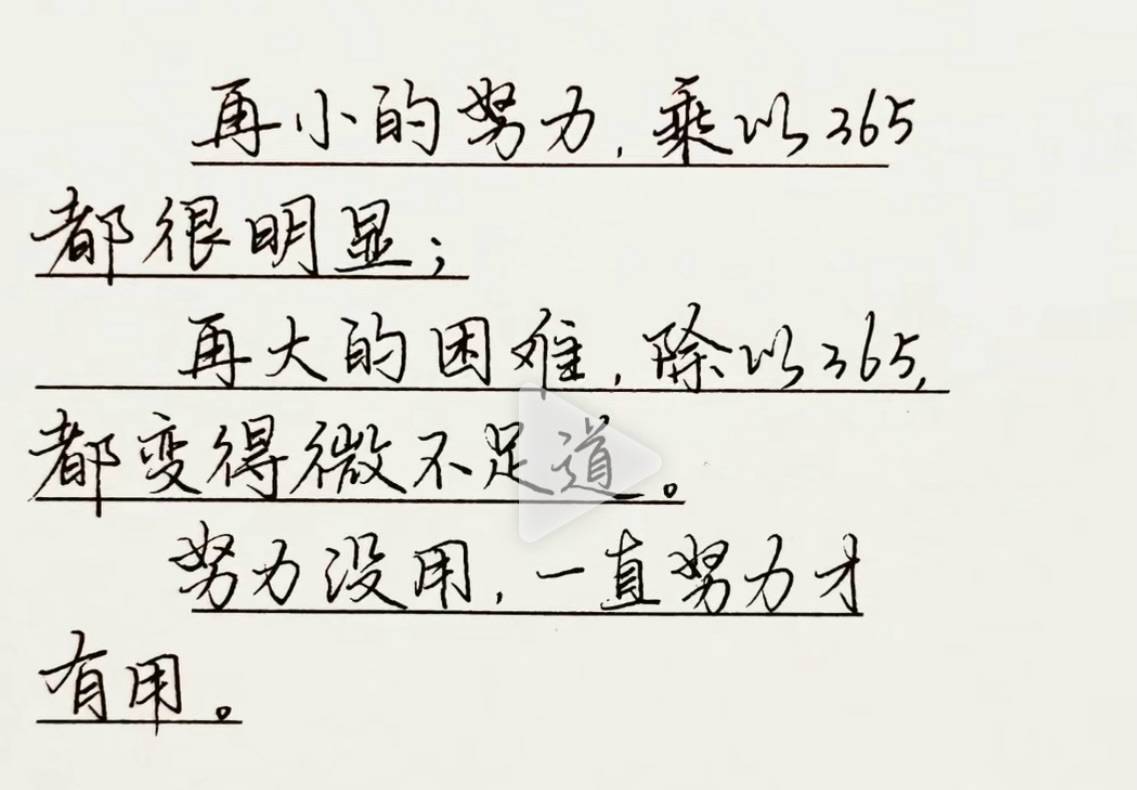 再小的努力,乘以365
都很明显;
再大的困难,除以365,
都变得微不足道。
努力没用,一直努力才
有用。